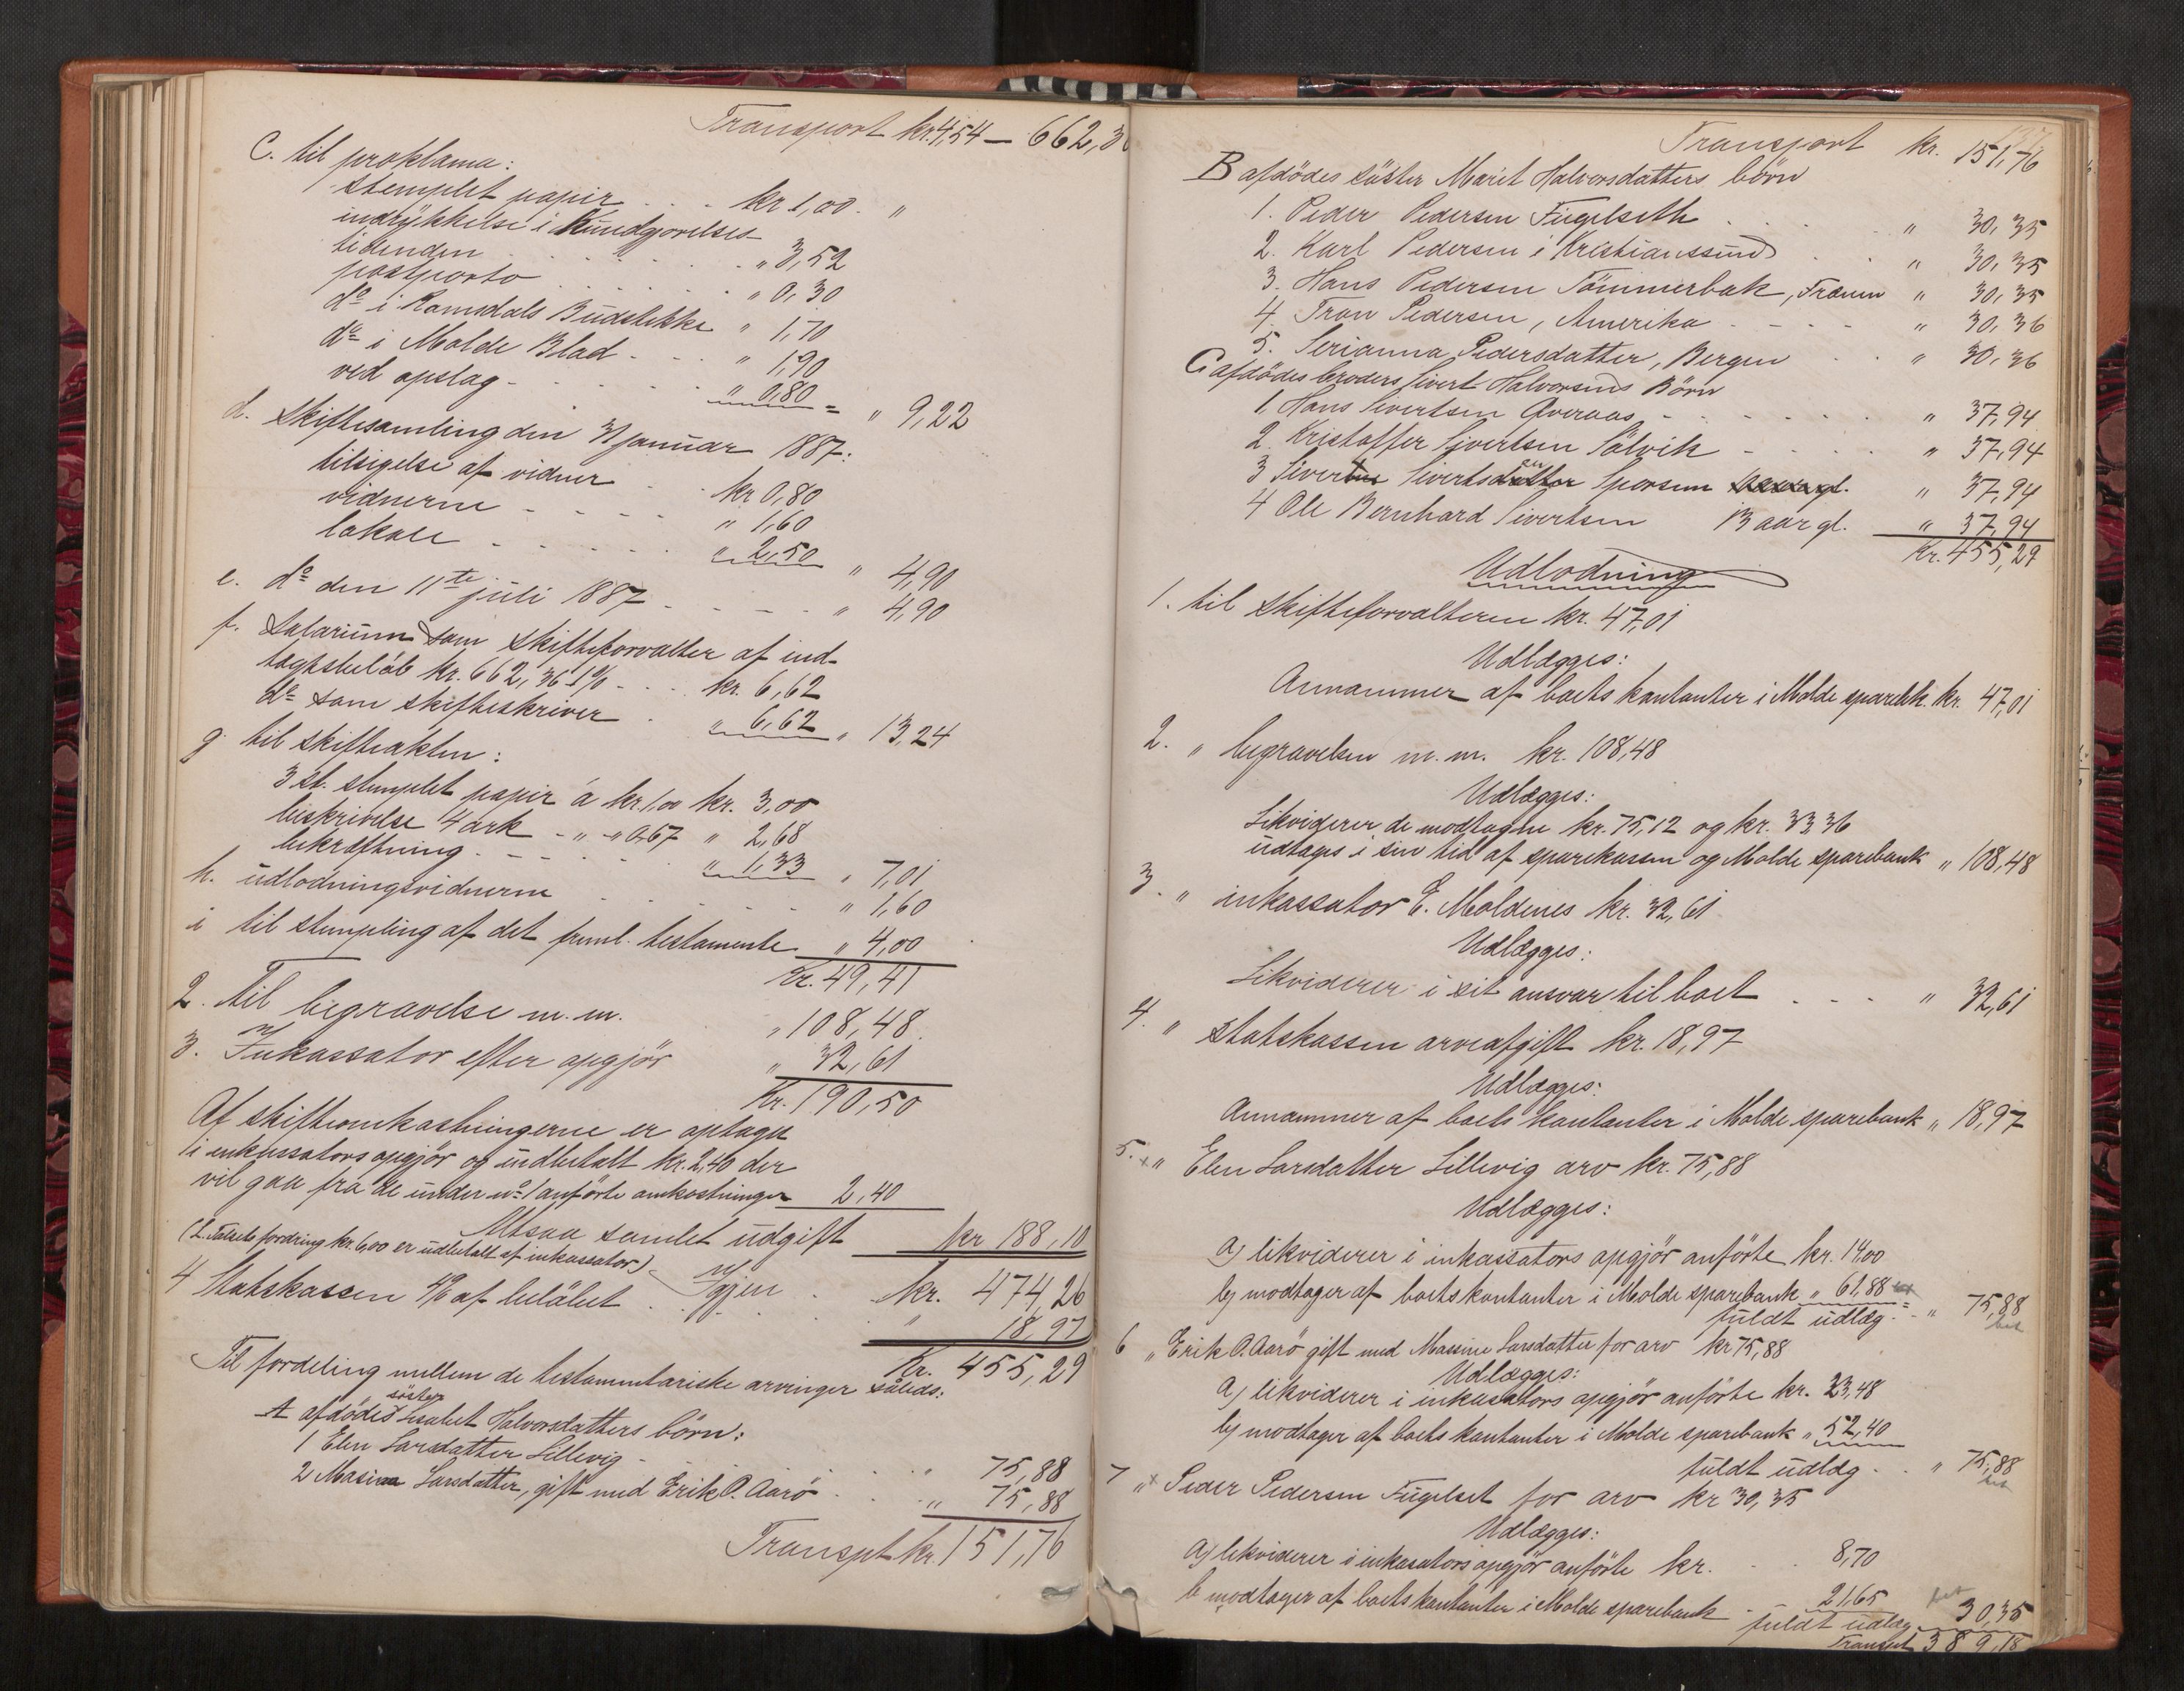 Transport kr. 4,54 — 662,3
C. til proklama:
stemplet papir . . . kr 1,00 . "
indrykkelse i Kundgjorelses-
tidenden . . . . . . " 3,52
postporto . . . . . " 0,30
do i Romsdals Budstikke " 1,70
do i Molde Blad . . . " 1,90
ved opslag . . . . . . " 0,80 = " 9,22
d. Skiftesamling den 31 januar 1887:
tilsigelse af vidner . . kr 0,80
vidnerne . . . . . " 1,60
lokale . . . . . . " 2,50 " 4,90
e. do den 11te juli 1887 . . . . . " 4,90
f. Salarium som skifteforvalter af ind-
tægtsbeløb kr. 662,36 1% . . . kr. 6,62
do som skifteskriver . " 6,62 " 13,24
g. til skifteakten:
3 st. stemplet papir á kr. 1,00 kr. 3,00
beskrivelse 4 ark - " - " 0,67 " 2,68
bekræftning . . . . . . " 1,33 " 7,01
h. udlodningsvidnerne . . . . . . " 1,60
i til stempling af det freml. testamente " 4,00
Kr. 49,41
2. Til begravelse m.m. " 108,48
3. Inkassator efter opgjör " 32,61
Kr. 190,50
Af skifteomkostningerne er optaget
i inkassators opgjör og indbetalt kr. 2,40 der
vil gaa fra de under no 1 anförte omkostninger 2,40
Altsaa samlet udgift kr 188,10
( fordring kr. 6,00 er udbetalt af inkassator)
Igjen . kr. 474,26
4 Statskassen 4% af beløbet . . . . . " 18,97
Kr. 455,29
Til fordeling mellem de testamentariske arvinger således:
A afdödes söster Lisabet Halvorsdatters börn:
1 Elen Larsdatter Lillevig - . . . . . " 75,88
2 Masina Larsdatter, gift med Erik O. Aarö . . . " 75,88
Transpt kr. 151,76
Transport kr. 151,76
B afdödes söster Marit Halvorsdatters börn
1. Peder Pedersen Fugelseth . . . . " 30,35
2. Karl Pedersen i Kristianssund . . " 30,35
3. Hans Pedersen Tömmerbak, Frænen " 30,35
4. Tron Pedersen, Amerika . - - - " 30,36
5. Serianna Pedersdatter, Bergen . . " 30,36
C afdödes broders Sivert Halvorsens Börn
1. Hans Sivertsen Qveraas - - - . . . " 37,94
2. Kristoffer Sivertsen Sölvik - . . . " 37,94
3 Sivert Siverts Sporsem gl. " 37,94
4 Ole Bernhard Sivertsen 13 aar gl. " 37,94
Kr. 455,29
Udlodning
1. til skifteforvalteren kr. 47,01
Udlægges:
Annammer af boets kontanter i Molde sparebk. kr. 47,01
2. " begravelsen m.m. kr. 108,48
Udlægges:
Likviderer de modtagne kr. 75,12 og kr. 33,36
udtages i sin tid af sparekassen og Molde sparebank " 108,48
3. " inkassator E. Moldenes kr. 32,61
Udlægges:
Likviderer i sit ansvar til boet . - - - " 32,61
4. " Statskassen arveafgift kr. 18,97
Udlægges:
Annammer af boets kontanter i Molde sparebank " 18,97
5. x " Elen Larsdatter Lillevig arv kr. 75,88
Udlægges:
a) likviderer i inkassators opgjör anförte kr. 14,00
b) modtager af boets kontanter i Molde sparebank " 61,88
fuldt udlæg . - - " 75,88
bet
6 " Erik O. Aarö gift med Massine Larsdatter for arv kr 75,88
Udlægges:
a) likviderer i inkassators opgjör anförte kr. 23,48
b) modtager af boets kontanter i Molde sparebank " 52,40
fuldt udlæg - . . " 75,88
bet
7 " x Peder Pedersen Fugelset for arv kr 30,35
Udlægges:
a) likviderer i inkassators opgjör anförte kr. - . . 8,70
b modtager af boets kontanter i Molde sparebank - 21,65
fuldt udlæg bet 30,35
Transpt 389,18